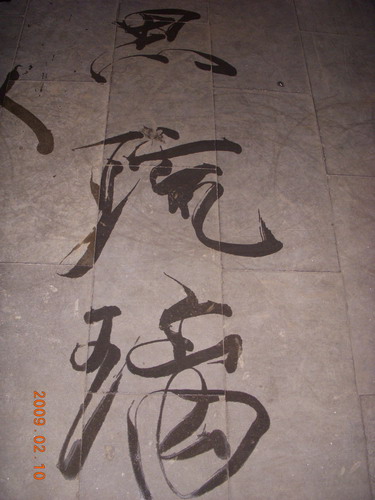 琉璃
2009.02.10